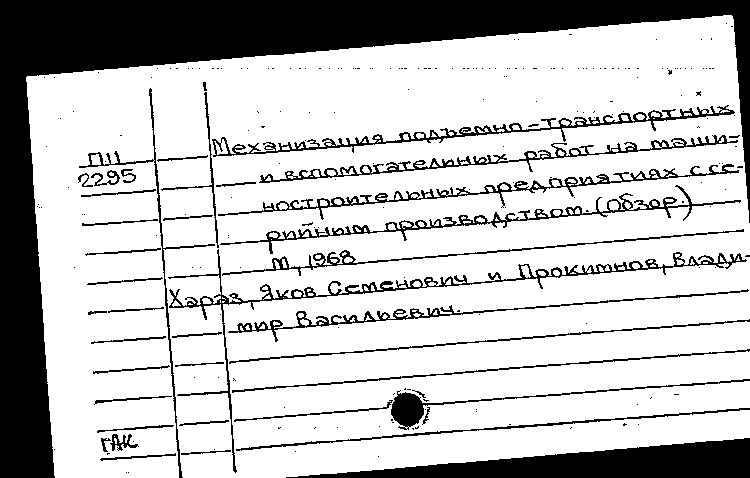 Механизация подъемно-транспортных
П11
2295
и вспомогательных работ на маши-
ностроительных предприятиях с се-
рийным производством. (Обзор.)
М., 1968
Хараз, Яков Семенович и Прокимнов, Влади-
мир Васильевич.
ГАК